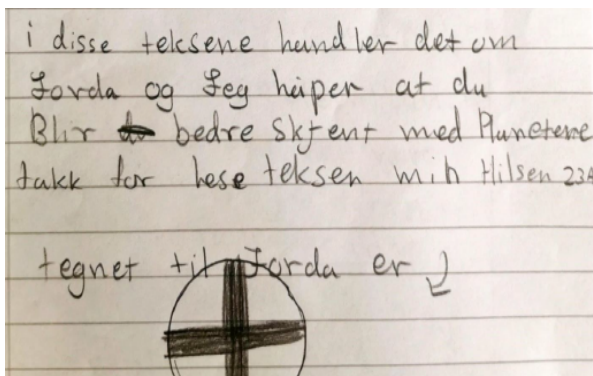 i disse teksene handler det om
Jorda og Jeg håper at du
Blir bedre skjent med Planetene
takk for lese teksen min Hilsen 23A
tegnet til Jorda er